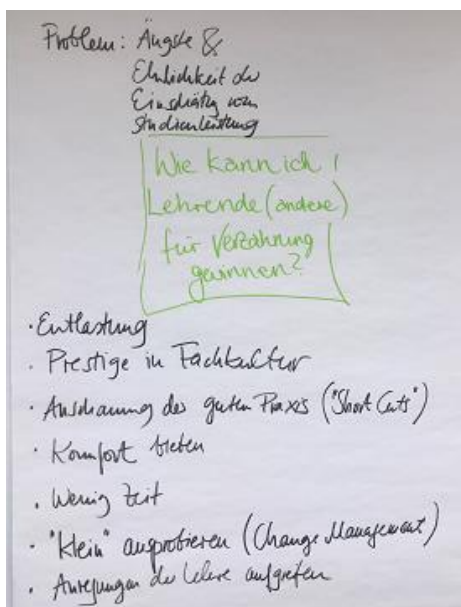 Problem: Ängste &
Ehrlichkeit der
Einschätzg von
Studienleistung
Wie kann ich
Lehrende (andere)
für Verzahnung
gewinnen?
· Entlastung
· Prestige in Fachkultur
· Anschauung der guten Praxis ("Short Cuts")
· Komfort bieten
· Wenig Zeit
· "Klein" ausprobieren (Change Management)
· Anregungen der Lehre aufgreifen